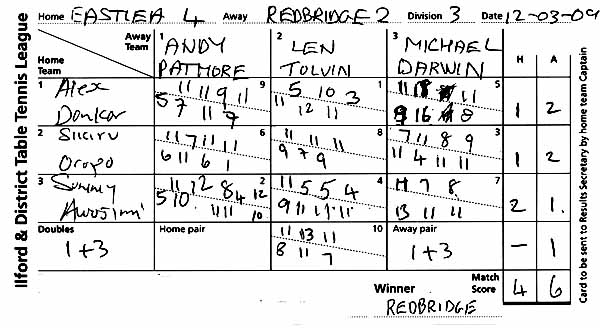 Ilford & District Table Tennis League
Home EASTLEA 4 Away REDBRIDGE 2 Division 3 Date 12-03-09
Away Team
Home Team
1 ANDY PATMORE
2 LEN TOLVIN
3 MICHAEL DARWIN
H A
1 Alex Donkor
9
11 11 9 11
5 7 11 7
1
5 10 3
11 12 11
5
1 2
2
Oropo
6
11 7 11 11
6 11 6 1
8
11 11 11
9 7 9
3
7 11 8 9
11 4 11 11
1 2
3 Sunny Awosimi
2
11 12 8 4 12
5 10 11 11 10
4
11 5 5 4
9 11 11 11
7
11 7 8
13 11 11
2 1
Doubles
1+3
Home pair
10
11 13 11
8 11 7
Away pair
1+3
– 1
Winner
REDBRIDGE
Match Score
4 6
Card to be sent to Results Secretary by home team Captain